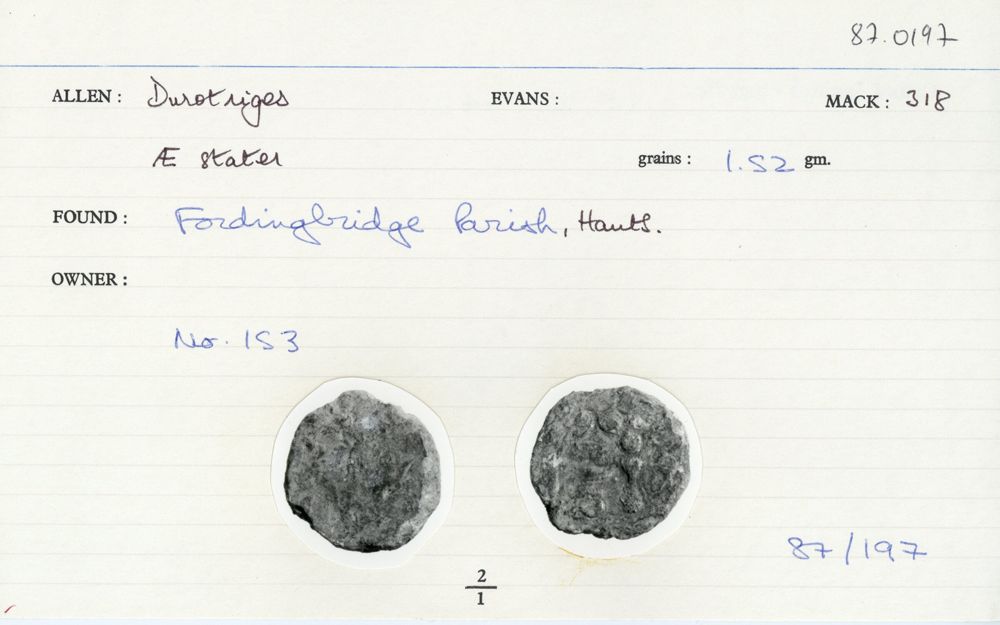 87.0197
ALLEN : Durotriges EVANS : MACK : 318
Æ stater grains : 1.52 gm.
FOUND : Fordingbridge Parish, Hants.
OWNER :
No. 153
87/197
2
1